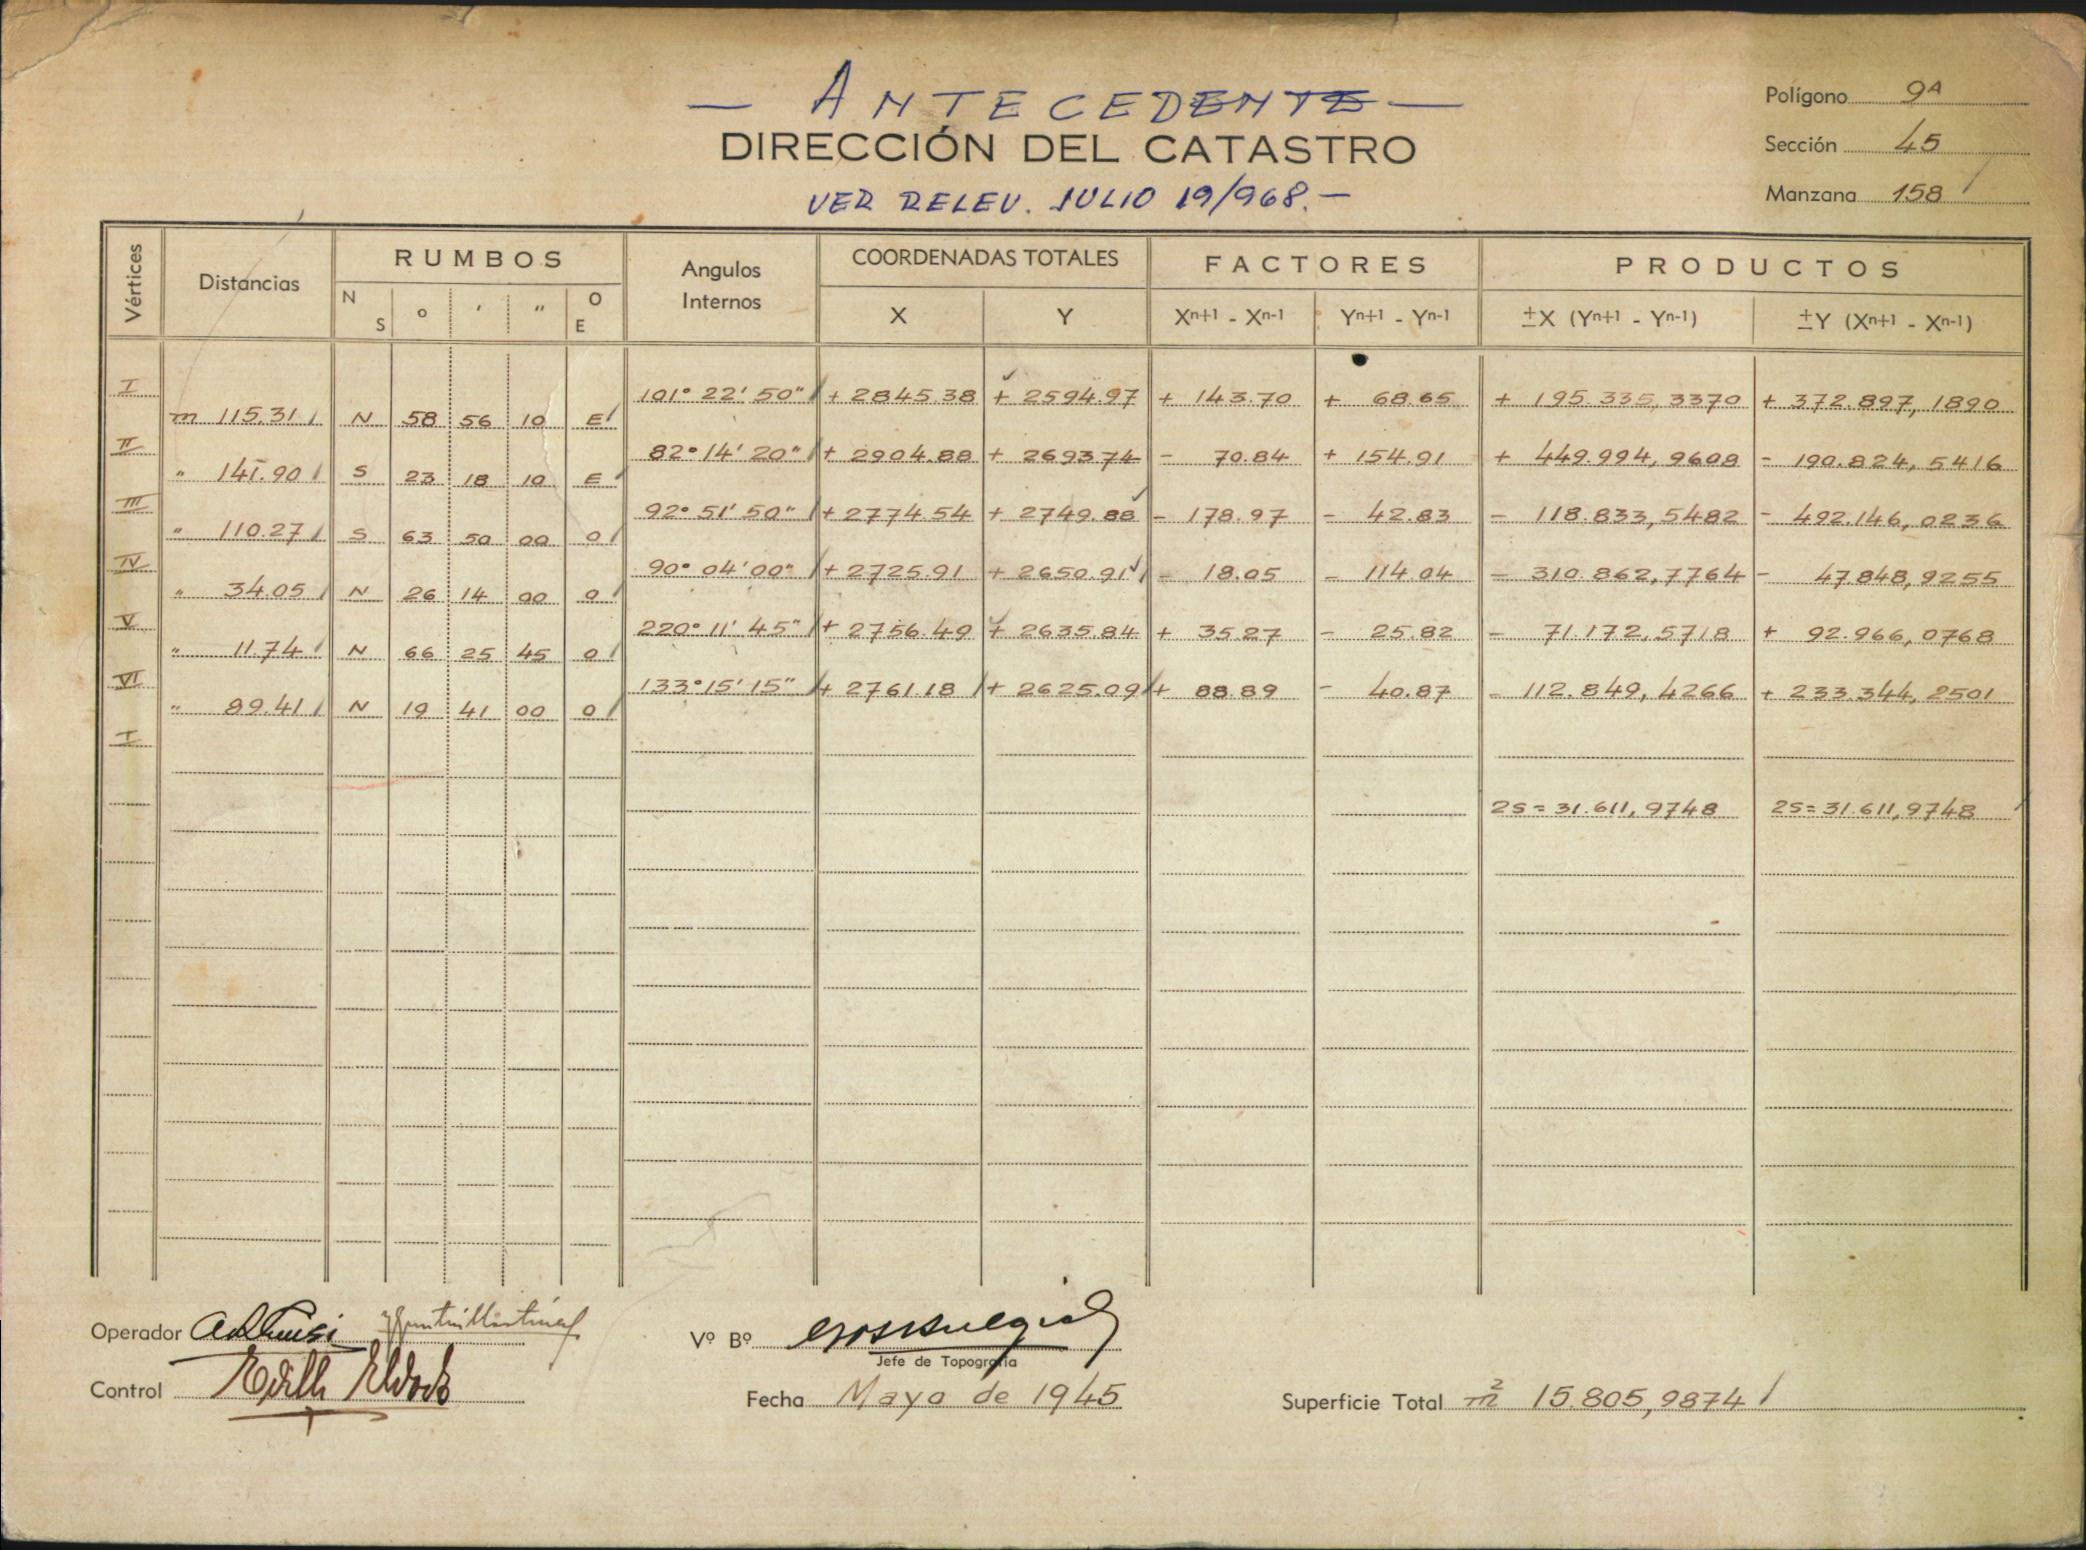 — ANTECEDENTE —
DIRECCIÓN DEL CATASTRO
VER RELEV. JULIO 19/968.-
Polígono 9A
Sección 45
Manzana 158
Vértices Distancias RUMBOS Angulos Internos COORDENADAS TOTALES FACTORES PRODUCTOS
N S o ' " O E X Y Xn+1 - Xn-1 Yn+1 - Yn-1 ±X (Yn+1 - Yn-1) ±Y (Xn+1 - Xn-1)
I 101° 22' 50" + 2845.38 + 2594.97 + 143.70 + 68.65 + 195.335,3370 + 372.897,1890
m 115.31 N 58 56 10 E
II 82° 14' 20" + 2904.88 + 2693.74 - 70.84 + 154.91 + 449.994,9608 - 190.824,5416
" 141.90 S 23 18 10 E
III 92° 51' 50" + 2774.54 + 2749.88 - 178.97 - 42.83 - 118.833,5482 - 492.146,0236
" 110.27 S 63 50 00 O
IV 90° 04' 00" + 2725.91 + 2650.91 - 18.05 - 114.04 - 310.862,7764 - 47.848,9255
" 34.05 N 26 14 00 O
V 220° 11' 45" + 2756.49 + 2635.84 + 35.27 - 25.82 - 71.172,5718 + 92.966,0768
" 11.74 N 66 25 45 O
VI 133° 15' 15" + 2761.18 + 2625.09 + 88.89 - 40.87 - 112.849,4266 + 233.344,2501
" 89.41 N 19 41 00 O
I
2S = 31.611,9748 2S = 31.611,9748
Operador
Vº Bº
Jefe de Topografía
Control
Fecha Mayo de 1945
Superficie Total m2 15.805,9874